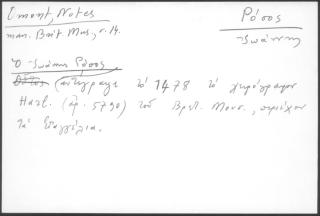 Omont, Notes
man. Brit. Mus., σ. 14.
Ρόσος
Ἰωάννης
Ὁ Ἰωάννης Ρόσος
Οὗτος ἀντέγραψε τὸ 1478 τὸ χειρόγραφον
Harl. (ἀρ. 5790) τοῦ Βρετ. Μουσ., περιέχον
τὰ Εὐαγγέλια.